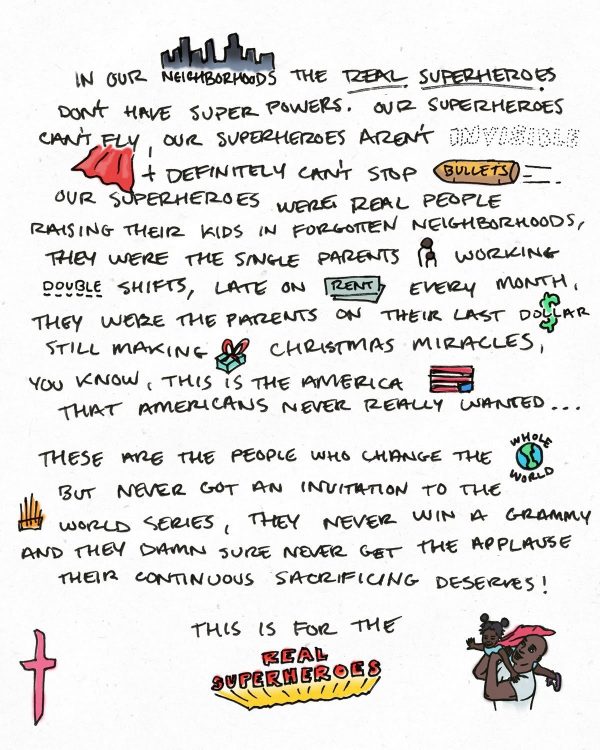 IN OUR NEIGHBORHOODS THE REAL SUPERHEROES
DON'T HAVE SUPER POWERS. OUR SUPERHEROES
CAN'T FLY, OUR SUPERHEROES AREN'T INVISIBLE
+ DEFINITELY CAN'T STOP BULLETS
OUR SUPERHEROES WERE REAL PEOPLE
RAISING THEIR KIDS IN FORGOTTEN NEIGHBORHOODS,
THEY WERE THE SINGLE PARENTS WORKING
DOUBLE SHIFTS, LATE ON RENT EVERY MONTH,
THEY WERE THE PARENTS ON THEIR LAST DOLLAR
STILL MAKING CHRISTMAS MIRACLES,
YOU KNOW, THIS IS THE AMERICA
THAT AMERICANS NEVER REALLY WANTED...
THESE ARE THE PEOPLE WHO CHANGE THE WHOLE WORLD
BUT NEVER GOT AN INVITATION TO THE
WORLD SERIES, THEY NEVER WIN A GRAMMY
AND THEY DAMN SURE NEVER GET THE APPLAUSE
THEIR CONTINUOUS SACRIFICING DESERVES!
THIS IS FOR THE
REAL
SUPERHEROES